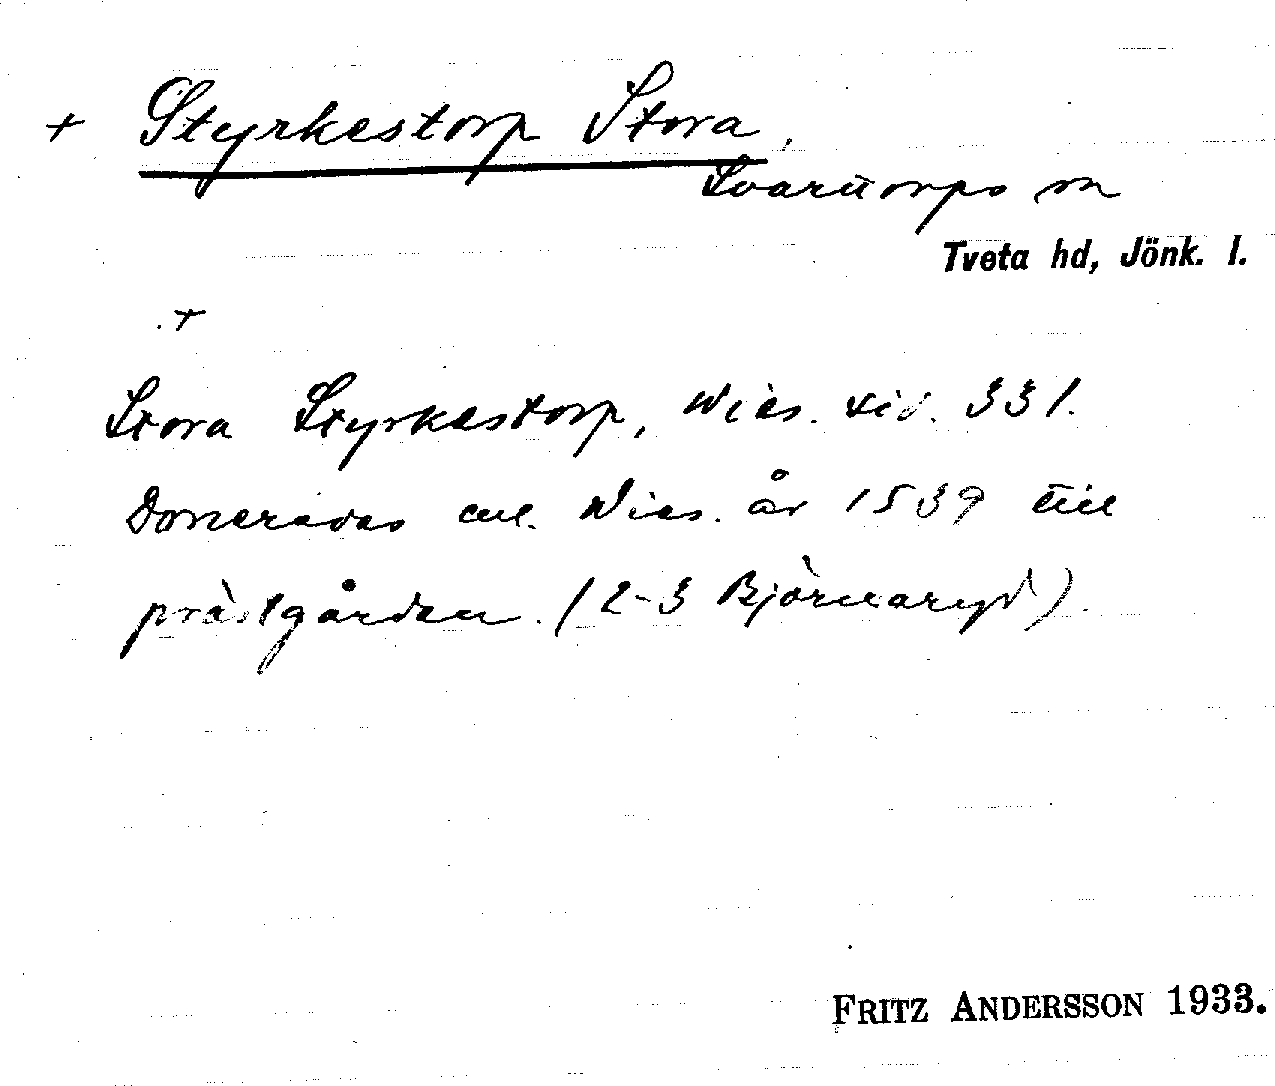 + Styrkestorp Stora,
Svarttorps sn
Tveta hd, Jönk. l.
+
Stora Styrkestorp, Wies. sid. 331.
Donerades enl. Wies. år 1539 till
prästgården. (2-3 Björnaryd).
FRITZ ANDERSSON 1933.